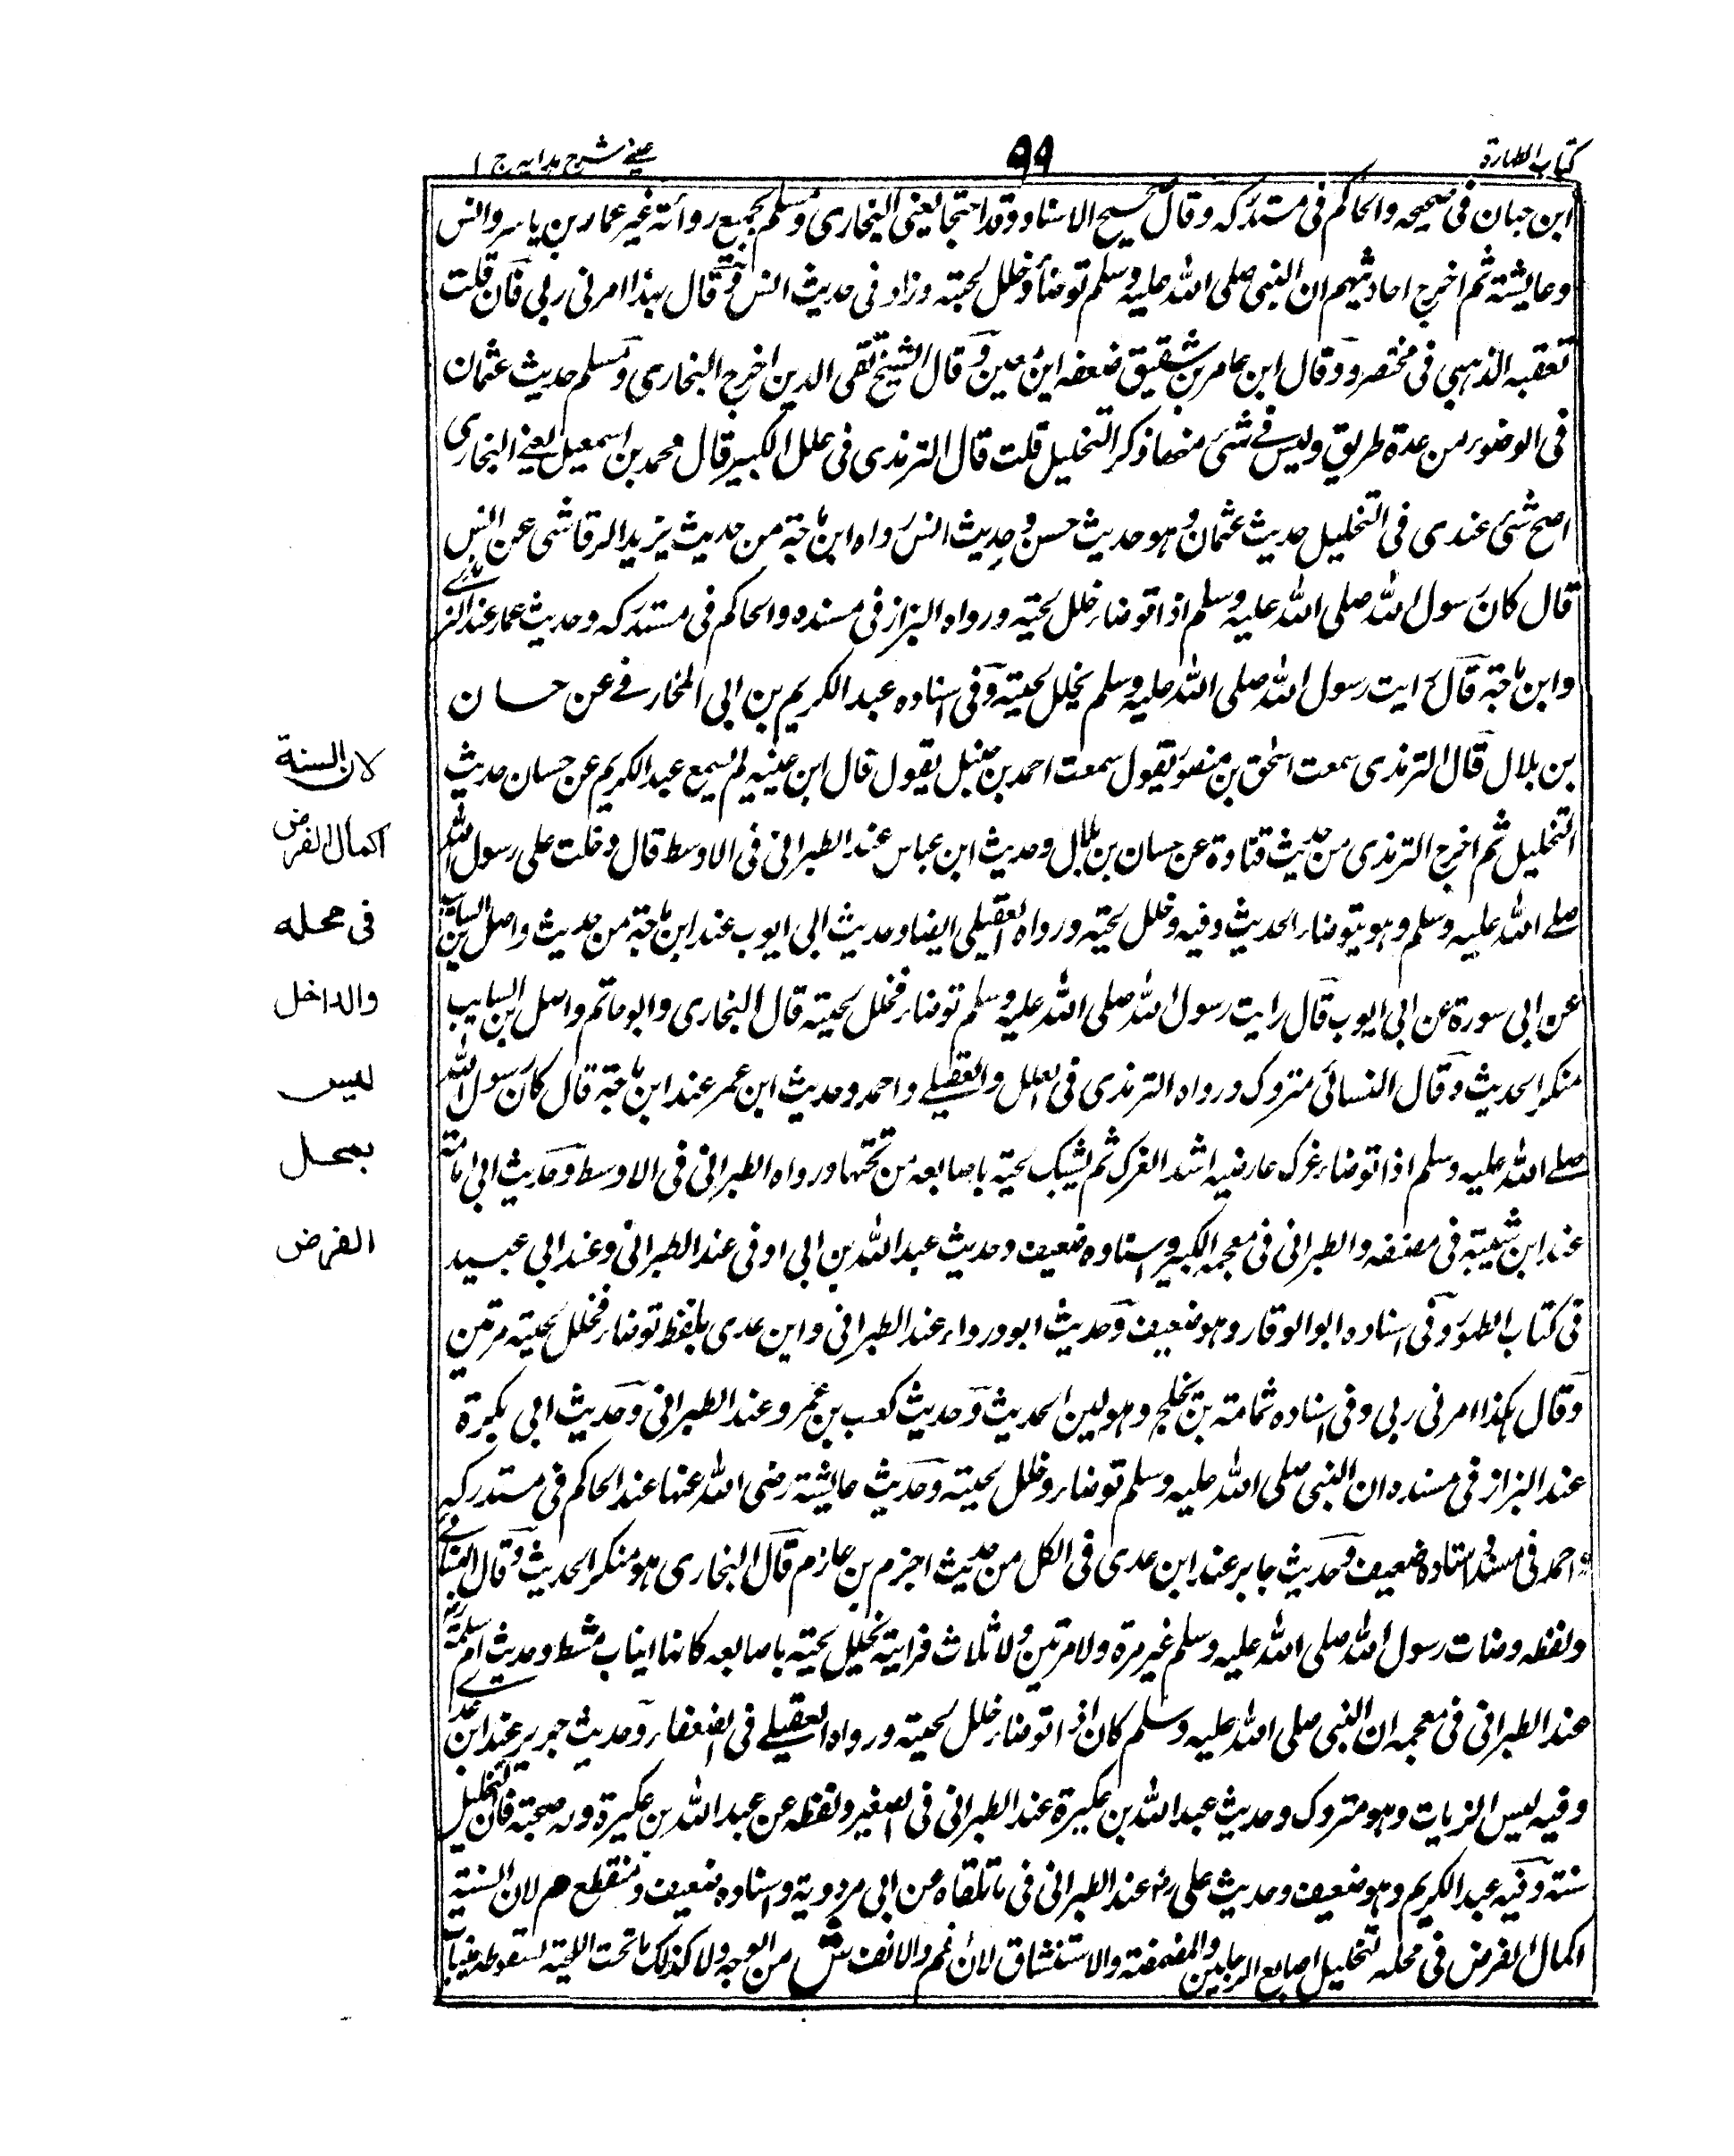 كتاب الطهارة
٩٩
عيني شرح هدايه ج ١
ابن حبان فى صحيحه والحاكم فى مستدركه وقال صحيح الاسناد وقد احتجا يعنى البخارى ومسلم بجميع رواته غير عمار بن ياسر وانس
وعايشة ثم اخرج احاديثهم ان النبى صلى الله عليه وسلم توضأ وخلل لحيته وزاد فى حديث انس وقال بهذا امرنى ربى فان قلت
تعقبه الذهبى فى مختصره وقال ابن عامر بن شقيق ضعفه ابن معين وقال الشيخ تقى الدين اخرج البخارى ومسلم حديث عثمان
فى الوضوء من عدة طريق وليس فے شئ منها ذكر التخليل قلت قال الترمذى فى علل الكبير قال محمد بن اسمعيل يعنے البخارى
اصح شئ عندى فى التخليل حديث عثمان وهو حديث حسن وحديث انس رواه ابن ماجة من حديث يزيد الرقاشى عن انس
قال كان رسول الله صلى الله عليه وسلم اذا توضاء خلل لحيته ورواه البزاز فى مسنده والحاكم فى مستدركه وحديث عمار عند الترمذے
وابن ماجة قال رايت رسول الله صلى الله عليه وسلم يخلل لحيته وفى اسناده عبد الكريم بن ابى المخارق عن حسان
بن بلال قال الترمذى سمعت اسحق بن منصور يقول سمعت احمد بن حنبل يقول قال ابن عيينه لم يسمع عبد الكريم عن حسان حديث
التخليل ثم اخرج الترمذى من حديث قتادة عن حسان بن بلال وحديث ابن عباس عند الطبرانى فى الاوسط قال دخلت على رسول الله
صلے الله عليه وسلم وهو يتوضاء الحديث وفيه وخلل لحيته ورواه العقيلى ايضا وحديث ابى ايوب عند ابن ماجة من حديث واصل بن السايب
عن ابى سورة عن ابى ايوب قال رايت رسول الله صلى الله عليه وسلم توضاء فخلل لحيته قال البخارى وابو حاتم واصل بن السايب
منكر الحديث وقال النسائى متروك ورواه الترمذى فى العلل والعقيلے واحمد وحديث ابن عمر عند ابن ماجة قال كان رسول الله
صلے الله عليه وسلم اذا توضاء عرك عارضيه اشد العرك ثم يشبك لحيته باصابعه من تحتها ورواه الطبرانى فى الاوسط وحديث ابى امامة
عند ابن شيبة فى مصنفه والطبرانى فى معجمه الكبير واسناده ضعيف وحديث عبد الله بن ابى اوفى عند الطبرانى وعند ابى عبيد
فى كتاب الطهور وفى اسناده ابو الوقار وهو ضعيف وحديث ابو درداء عند الطبرانى وابن عدى بلفظ توضاء فخلل لحيته مرتين
وقال هكذا امرنى ربى وفى اسناده ثمامة بن نجلج وهو لين الحديث وحديث كعب بن عمرو عند الطبرانى وحديث ابى بكرة
عند البزاز فى مسنده ان النبى صلى الله عليه وسلم توضاء وخلل لحيته وحديث عايشة رضى الله عنها عند الحاكم فى مستدركه
واحمد فى مسنده واسناده ضعيف وحديث جابر عند ابن عدى فى الكل من حديث اجزم بن عازم قال البخارى هو منكر الحديث وقال النسائے
ولفظه وضات رسول الله صلى الله عليه وسلم غير مرة ولا مرتين ولا ثلاث فرايته يخلل لحيته باصابعه كانها انياب مشط وحديث ام سلمة رض
عند الطبرانى فى معجمه ان النبى صلى الله عليه وسلم كان اذا توضاء خلل لحيته ورواه العقيلے فى الضعفاء وحديث جرير عند ابن عدے
وفيه ليس الزيات وهو متروك وحديث عبد الله بن عكبرة عند الطبرانى فى الصغير ولفظه عن عبد الله بن عكبرة وله صحبة قال التخليل
سنته وفيه عبد الكريم وهو ضعيف وحديث على رض عند الطبرانى فى ماتلقاه عن ابى مردوية واسناده ضعيف ومنقطع هم لان السنة
اكمال الفرض فى محله تخليل اصابع الرجلين والمضمضة والاستنشاق لان الفم والانف ش من الوجه ولا كذلك ما تحت اللحية لسقوطه
لان السنة
اكمال الفرض
فى محله
والداخل
ليس
بمحل
الفرض